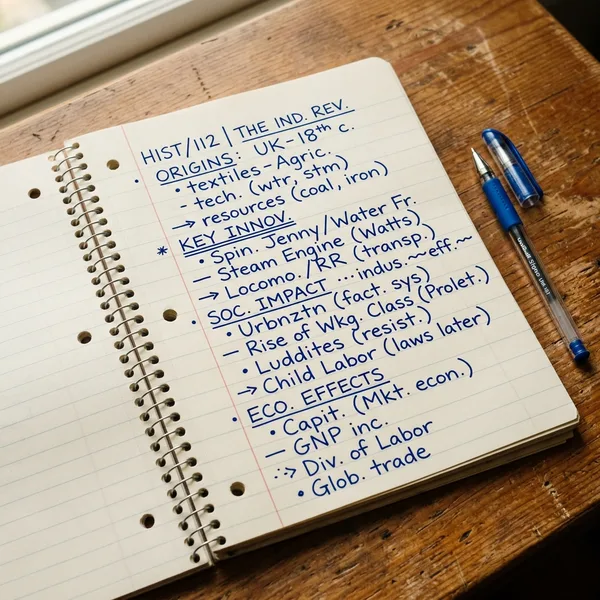 HIST/112 | THE IND. REV.
• ORIGINS: UK-18th c.
• textiles-Agric.
- tech. (wtr, stm)
→ resources (coal, iron)
* KEY INNOV.
• Spin. Jenny/Water Fr.
— Steam Engine (Watts)
→ Locomo./RR (transp.)
• SOC. IMPACT ...indus.~~eff.~~
• Urbnztn (fact. sys)
— Rise of Wkg. Class (Prolet.)
• Luddites (resist.)
→ Child Labor (laws later)
• ECO. EFFECTS
• Capit. (Mkt. econ.)
— GNP inc.
∴> Div. of Labor
• Glob. trade